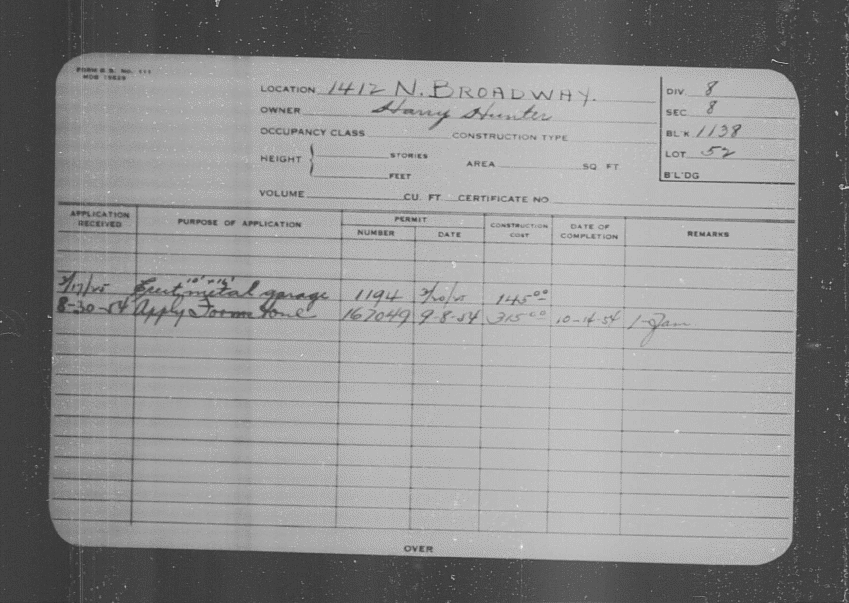 FORM B. B. No. 111
LOCATION 1412 N. BROADWAY.
OWNER Harry Hunter
OCCUPANCY CLASS CONSTRUCTION TYPE
HEIGHT STORIES FEET AREA SQ FT
VOLUME CU. FT CERTIFICATE NO.
DIV. 8
SEC 8
BL'K 1138
LOT 52
B'L'DG
APPLICATION RECEIVED PURPOSE OF APPLICATION PERMIT NUMBER DATE CONSTRUCTION COST DATE OF COMPLETION REMARKS
Erect 10' x 16' metal garage 1194 3/20/25 145.00
8-30-54 Apply Formstone 167049 9-8-54 315.00 10-14-54 1-Fam
OVER